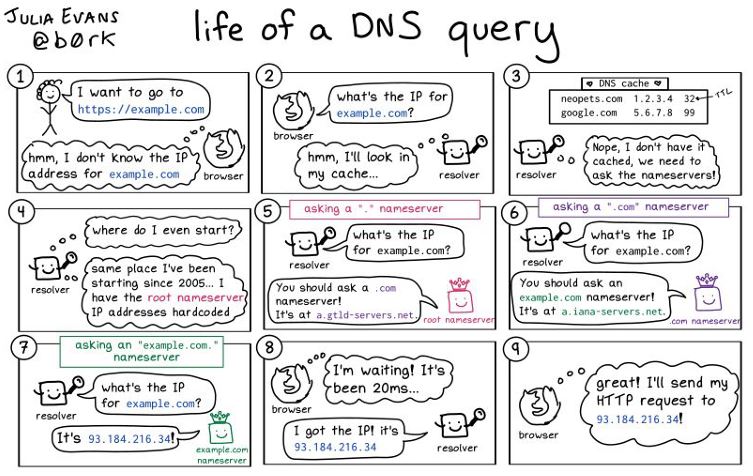 JULIA EVANS
@b0rk
life of a DNS query
1
I want to go to
https://example.com
hmm, I don't know the IP
address for example.com
browser
2
what's the IP for
example.com?
browser
hmm, I'll look in
my cache...
resolver
3
♥ DNS cache ♥
neopets.com 1.2.3.4 32 ← TTL
google.com 5.6.7.8 99
Nope, I don't have it
cached, we need to
ask the nameservers!
resolver
4
where do I even start?
same place I've been
starting since 2005... I
have the root nameserver
IP addresses hardcoded
resolver
5
asking a "." nameserver
what's the IP
for example.com?
resolver
You should ask a .com
nameserver!
It's at a.gtld-servers.net.
root nameserver
6
asking a ".com" nameserver
what's the IP
for example.com?
resolver
You should ask an
example.com nameserver!
It's at a.iana-servers.net.
.com nameserver
7
asking an "example.com."
nameserver
what's the IP
for example.com?
resolver
It's 93.184.216.34!
example.com
nameserver
8
I'm waiting! It's
been 20ms...
browser
I got the IP! it's
93.184.216.34
resolver
9
great! I'll send my
HTTP request to
93.184.216.34!
browser